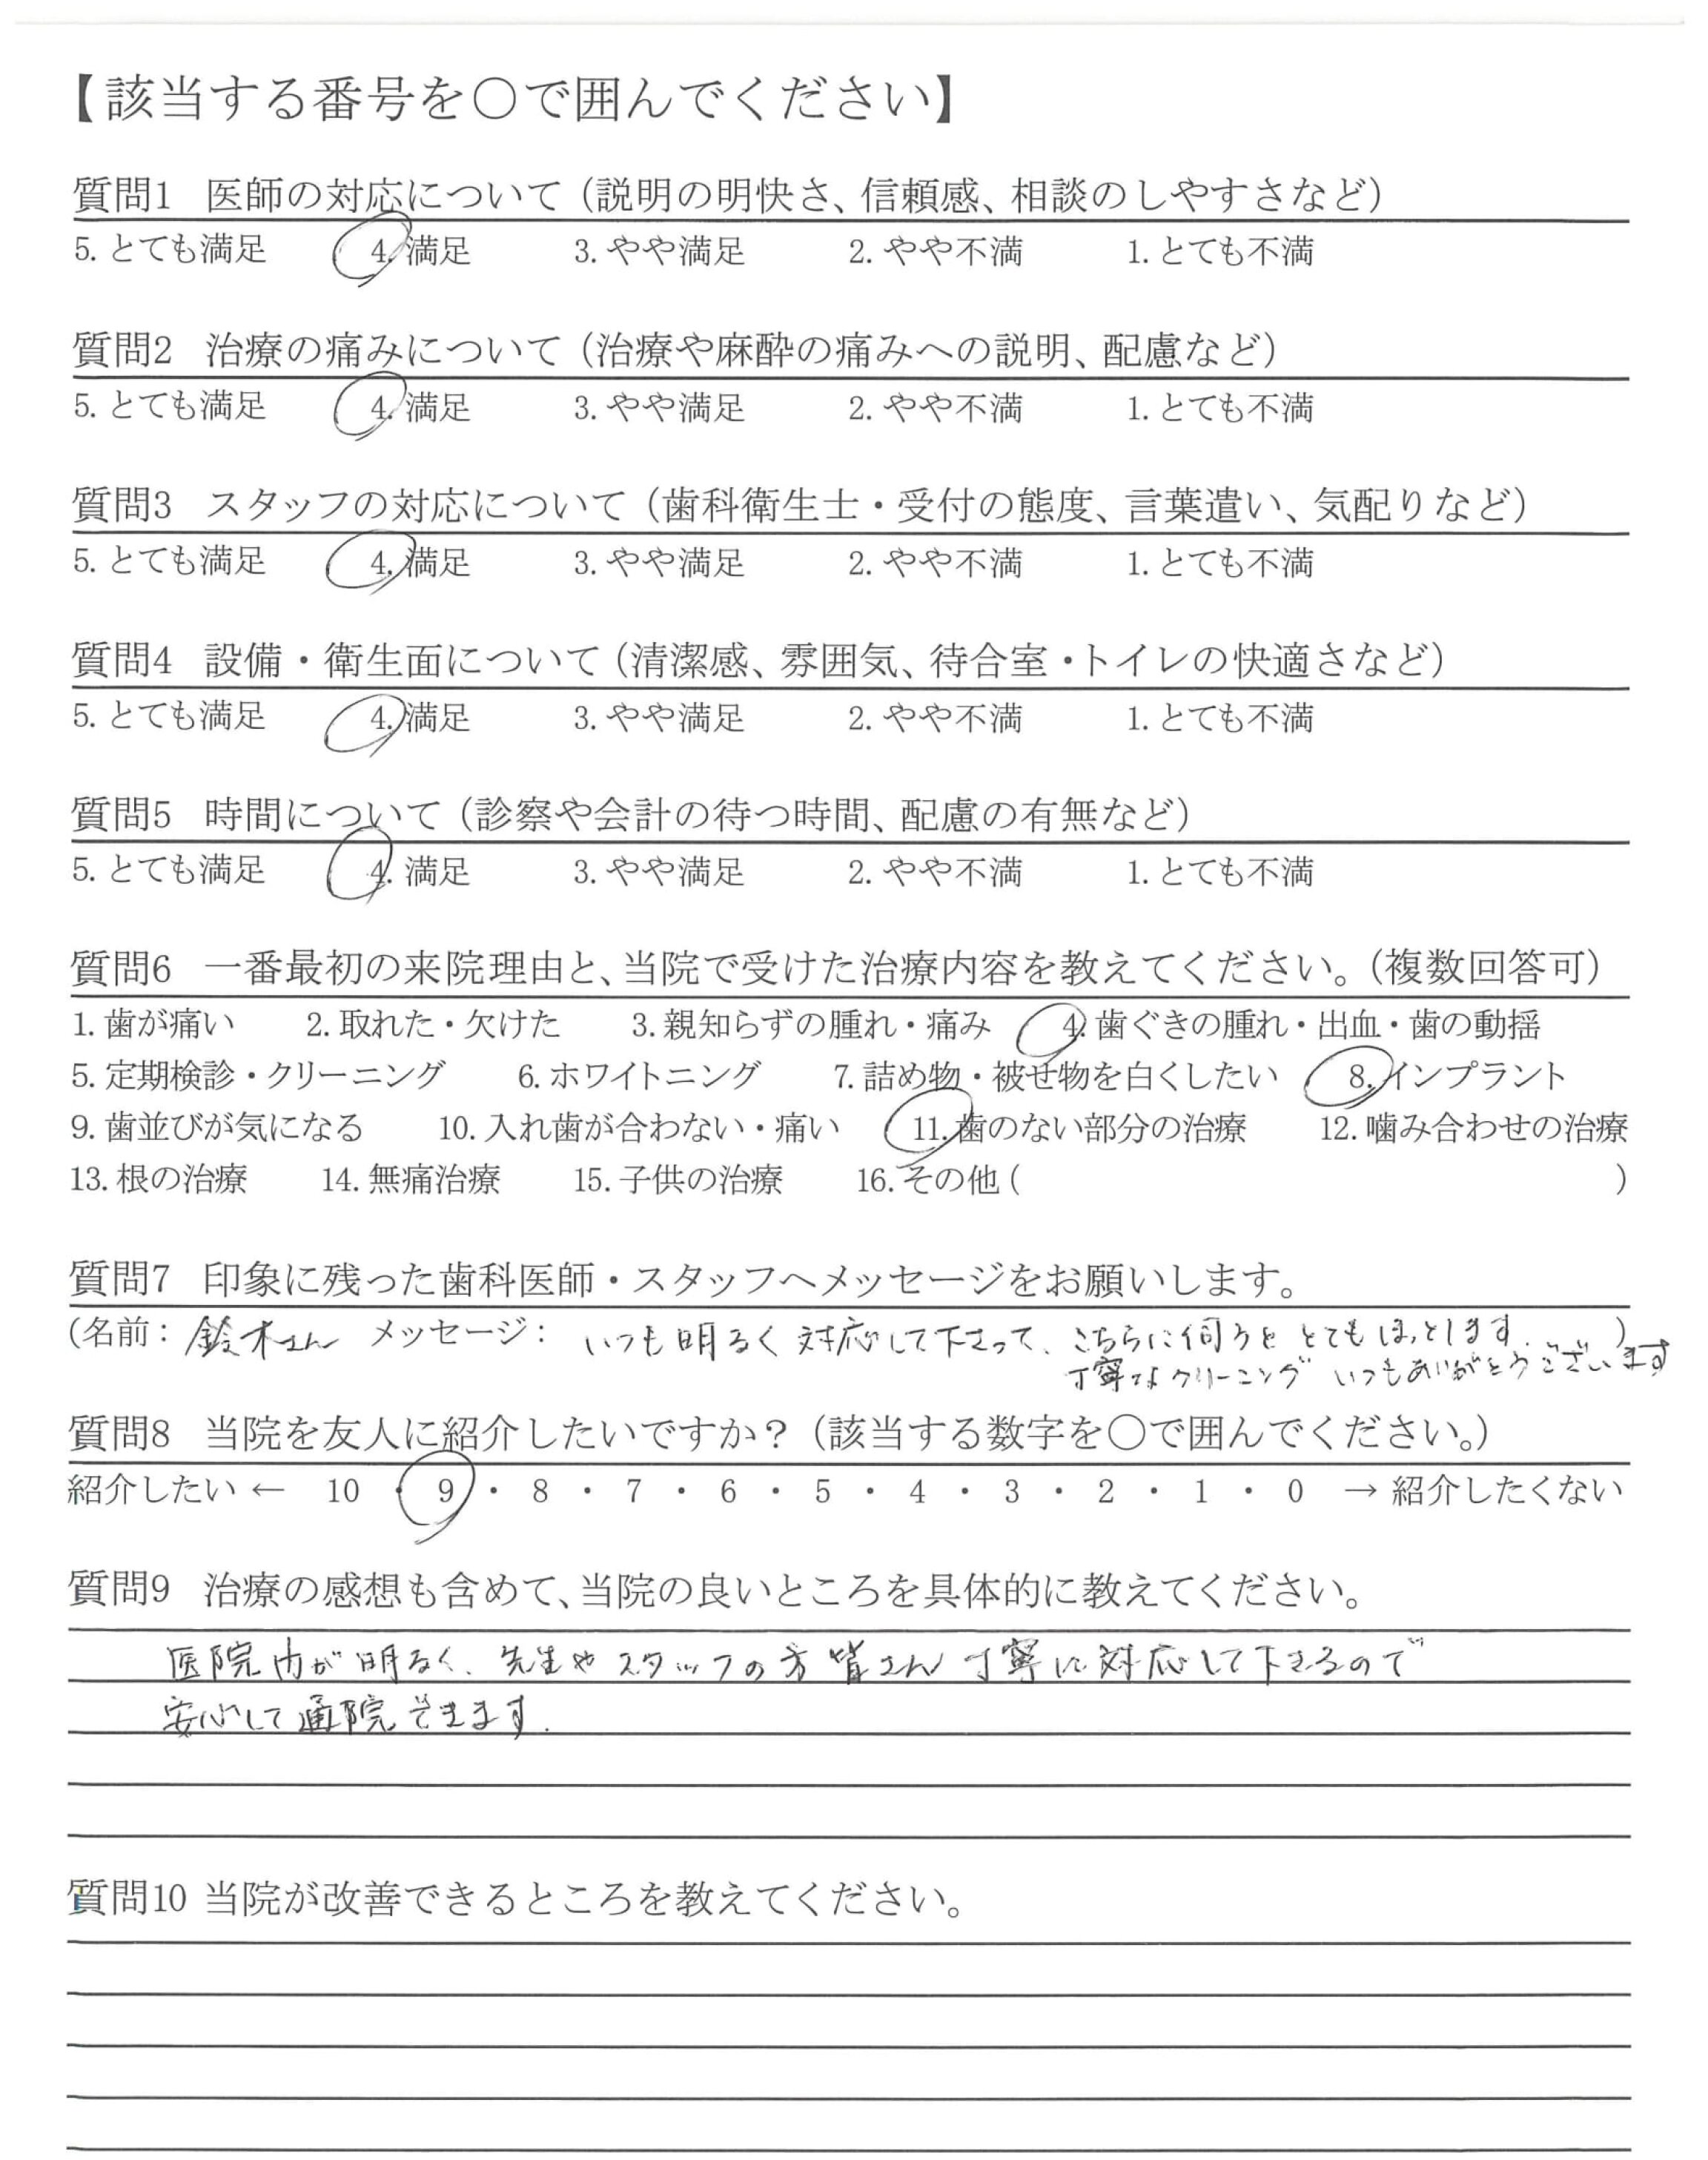 【該当する番号を〇で囲んでください】
質問1 医師の対応について（説明の明快さ、信頼感、相談のしやすさなど）
5. とても満足 4. 満足 3. やや満足 2. やや不満 1. とても不満
質問2 治療の痛みについて（治療や麻酔の痛みへの説明、配慮など）
5. とても満足 4. 満足 3. やや満足 2. やや不満 1. とても不満
質問3 スタッフの対応について（歯科衛生士・受付の態度、言葉遣い、気配りなど）
5. とても満足 4. 満足 3. やや満足 2. やや不満 1. とても不満
質問4 設備・衛生面について（清潔感、雰囲気、待合室・トイレの快適さなど）
5. とても満足 4. 満足 3. やや満足 2. やや不満 1. とても不満
質問5 時間について（診察や会計の待つ時間、配慮の有無など）
5. とても満足 4. 満足 3. やや満足 2. やや不満 1. とても不満
質問6 一番最初の来院理由と、当院で受けた治療内容を教えてください。（複数回答可）
1. 歯が痛い 2. 取れた・欠けた 3. 親知らずの腫れ・痛み 4. 歯ぐきの腫れ・出血・歯の動揺
5. 定期検診・クリーニング 6. ホワイトニング 7. 詰め物・被せ物を白くしたい 8. インプラント
9. 歯並びが気になる 10. 入れ歯が合わない・痛い 11. 歯のない部分の治療 12. 噛み合わせの治療
13. 根の治療 14. 無痛治療 15. 子供の治療 16. その他（ ）
質問7 印象に残った歯科医師・スタッフへメッセージをお願いします。
（名前：鈴木さん メッセージ：いつも明るく対応して下さって、こちらに伺うととてもほっとします。）
丁寧なクリーニングいつもありがとうございます
質問8 当院を友人に紹介したいですか？（該当する数字を〇で囲んでください。）
紹介したい ← 10 ・ 9 ・ 8 ・ 7 ・ 6 ・ 5 ・ 4 ・ 3 ・ 2 ・ 1 ・ 0 → 紹介したくない
質問9 治療の感想も含めて、当院の良いところを具体的に教えてください。
医院内が明るく、先生やスタッフの方皆さん丁寧に対応して下さるので
安心して通院できます。
質問10 当院が改善できるところを教えてください。